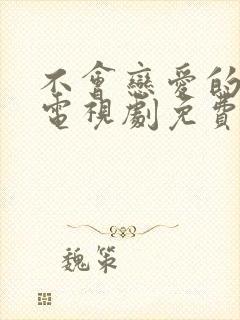 不會戀愛的
電視劇免費
魏策